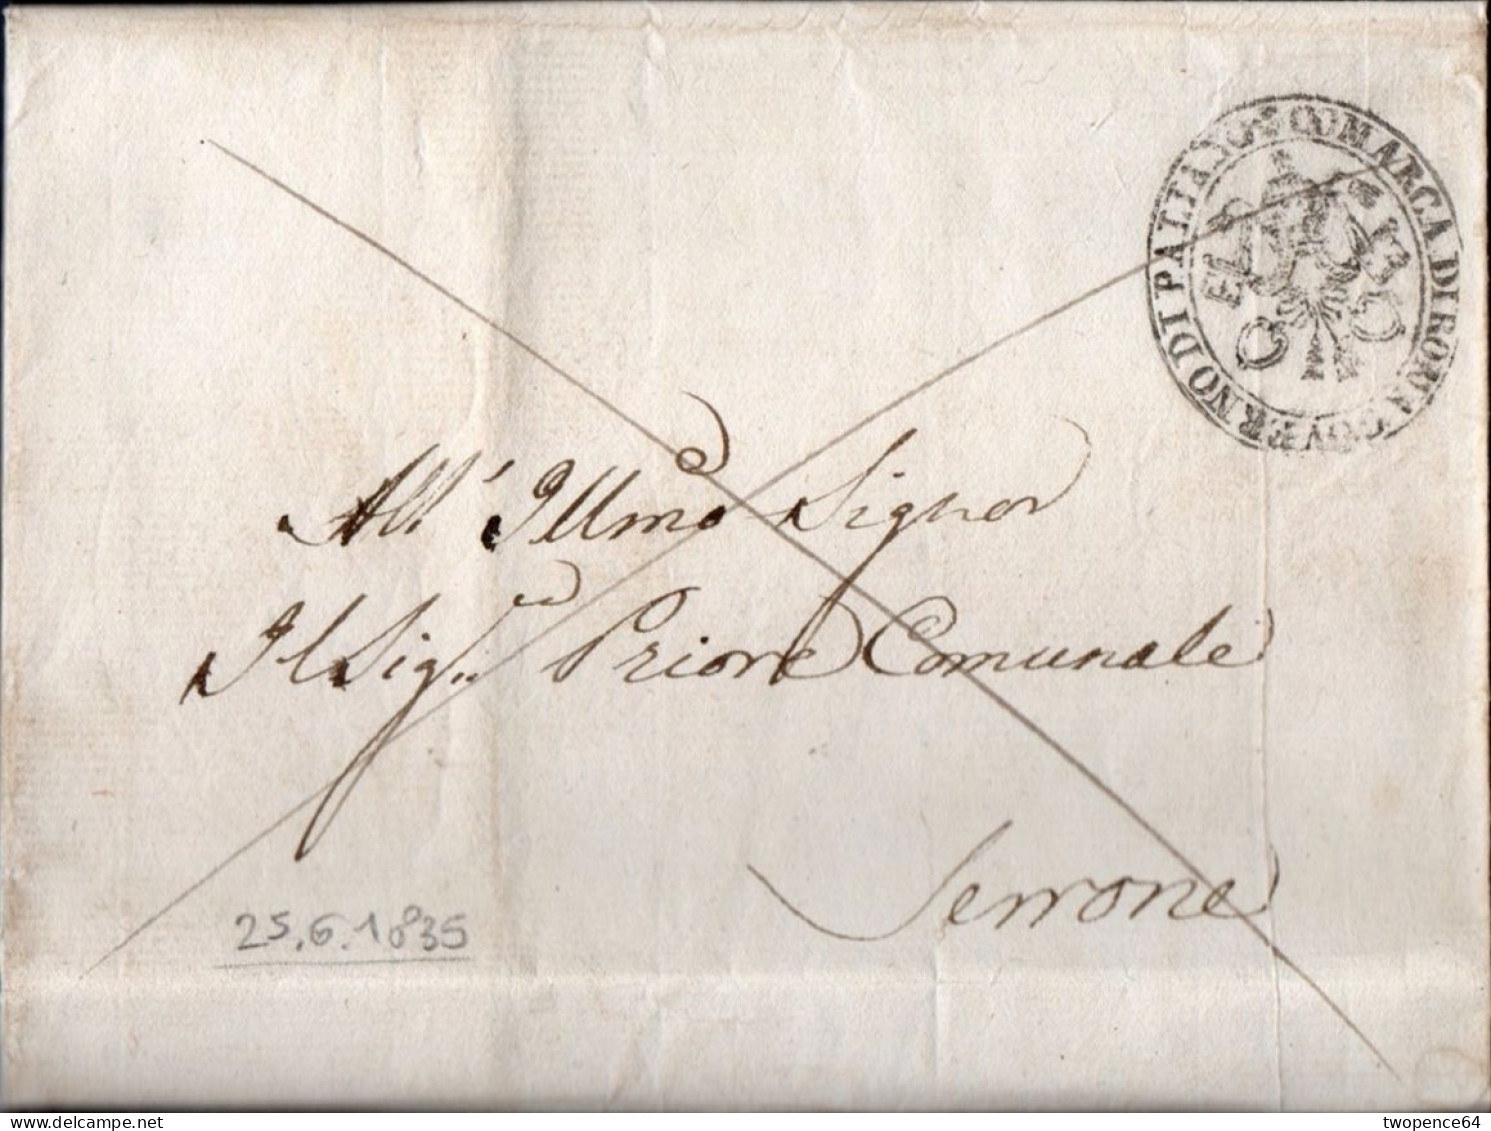 COMARCA DI ROMA GOVERNO DI PALIANO
All' Illmo Signor
Il Sig.re Priore Comunale
Serrone
25.6.1835
delcampe.net
twopence64